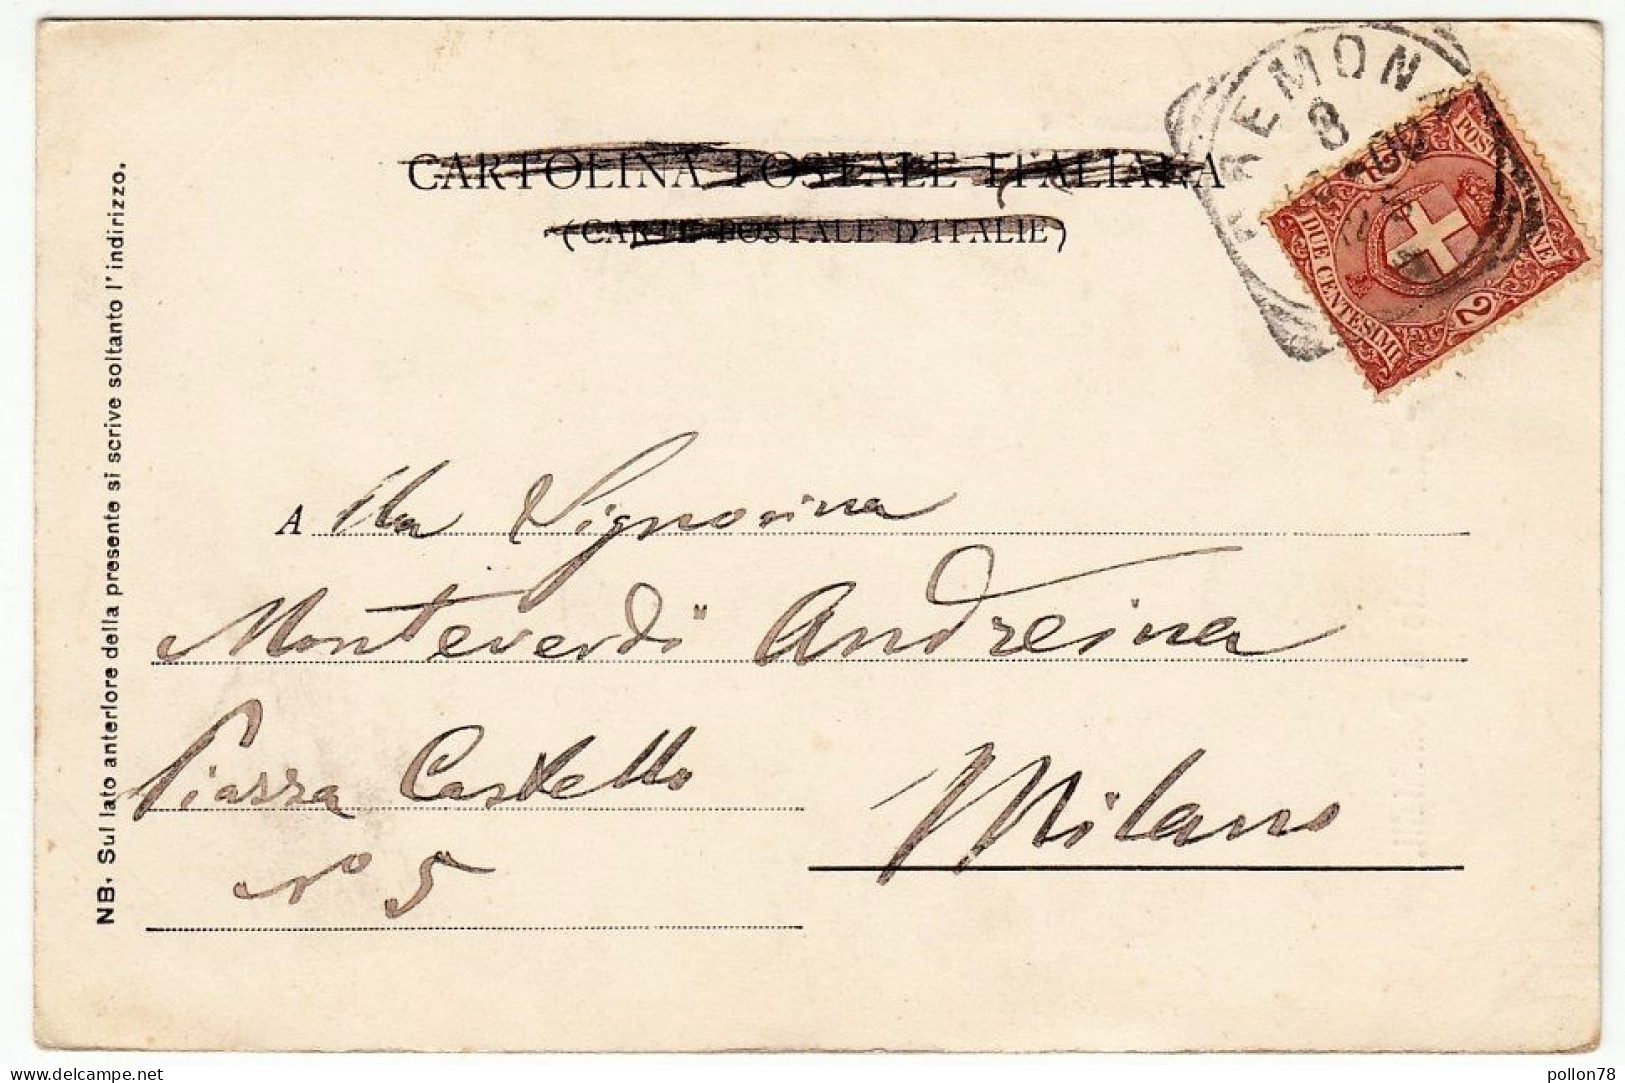 CARTOLINA POSTALE ITALIANA
(CARTE POSTALE D'ITALIE)
REMON
8
POST
NE
DUE CENTESIMI
2
NB. Sul lato anteriore della presente si scrive soltanto l'indirizzo.
A lla Signorina
Monteverdi Andreina
Piazza Castello
Milano
n° 5
delcampe.net
pollon78